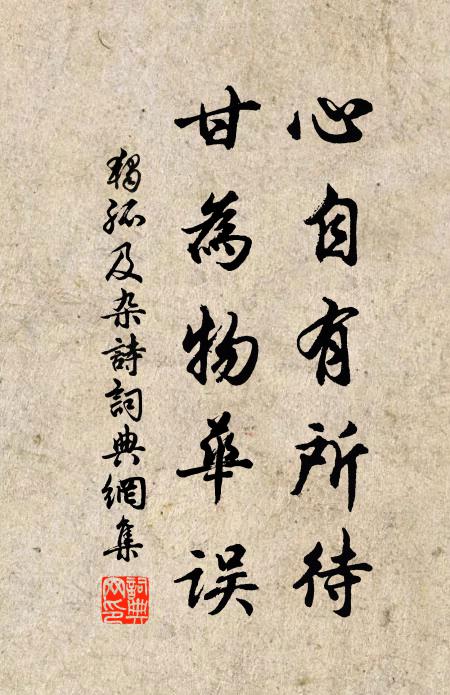 心自有所待
甘為物華誤
獨孤及杂詩詞典網集
詞典網印